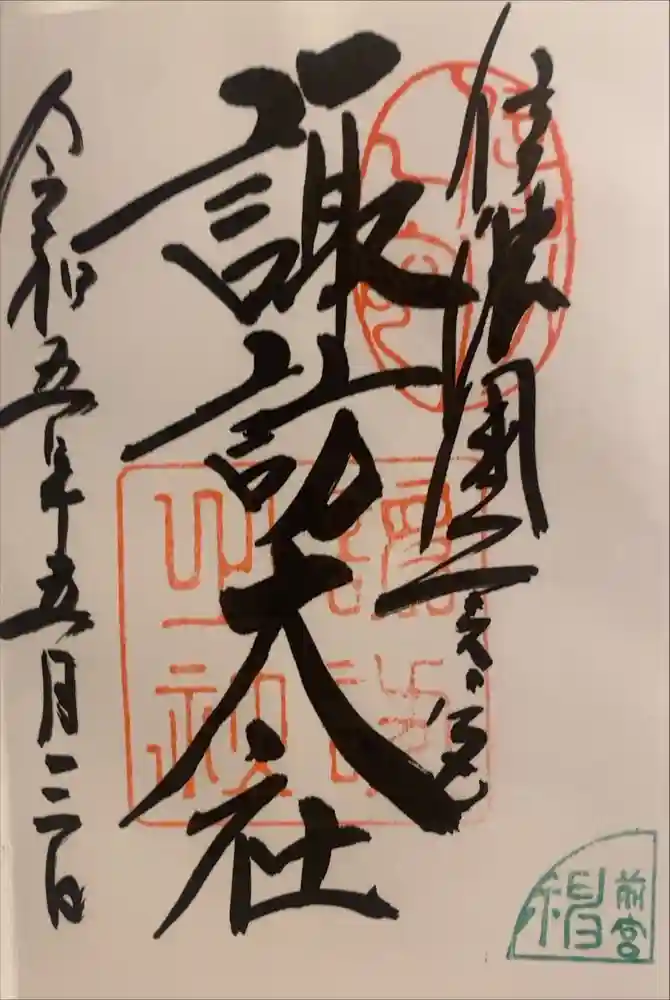 信濃國一之宮
諏訪大社
令和五年五月三日
前宮